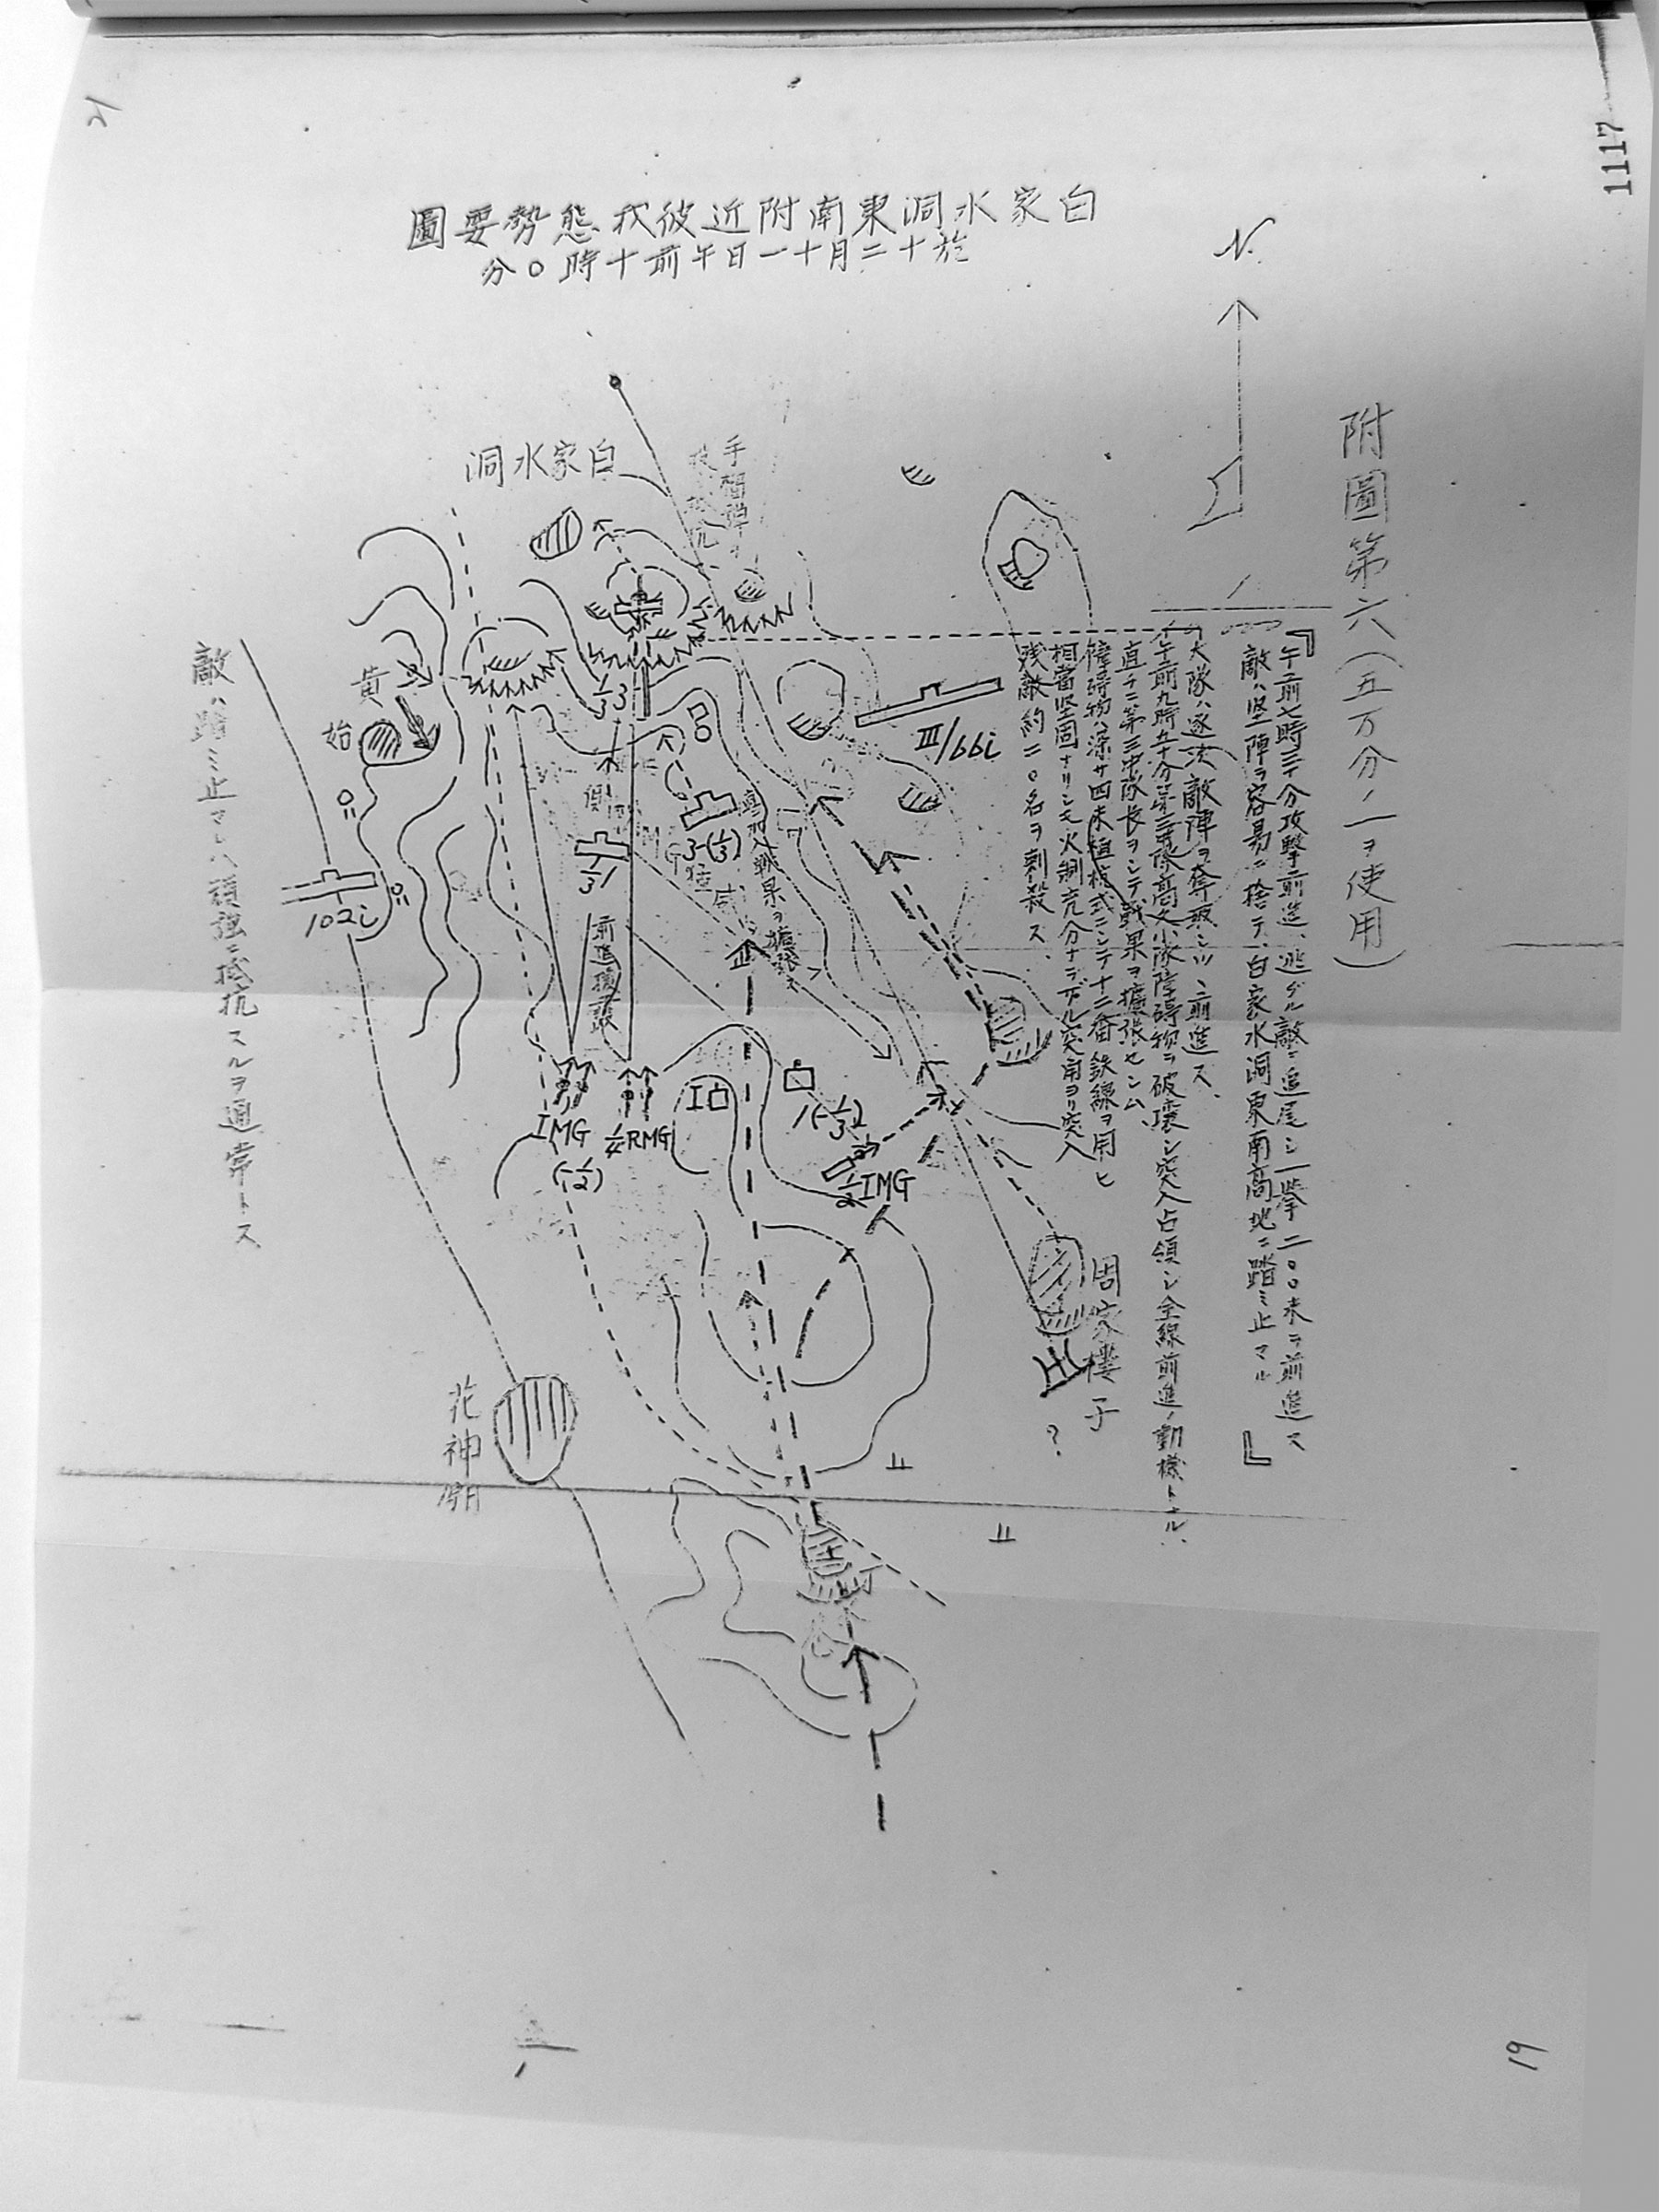 1117
附圖第六(五万分ノ一ヲ使用)
白家水洞東南附近彼我態勢要圖
於十二月十一日午前十時〇分
N
『午前七時三十分攻撃前進、逃グル敵ニ追尾シ一挙二〇〇米ヲ前進ス
敵ハ堅陣ヲ容易ニ捨テ、白家水洞東南高地ニ踏ミ止マル』
大隊ハ逐次敵陣ヲ奪取シツヽ前進ス
午前九時五十分第三中隊高久小隊障碍物ヲ破壊シ突入占領シ全線前進ノ動機トナル
直チニ第三中隊長ヲシテ戦果ヲ擴張セシム
障碍物ハ深サ四米植杭式ニシテ十二番鉄線ヲ用ヒ
相當堅固ナリシモ火制充分ナラザル突角ヨリ突入
残敵約二〇名ヲ刺殺ス
白家水洞
手榴弾
III/66i
1/3 3
3-(1/3)
戦果ヲ擴張ス
1/3 1
前進援護
黄
始
102i
IMG
(-1/2)
1/4RMG
I
1(-1/3)
1/2IMG
周家樓子
?
花神廟
敵ハ踏ミ止マレハ頑強ニ抵抗スルヲ通常トス
19